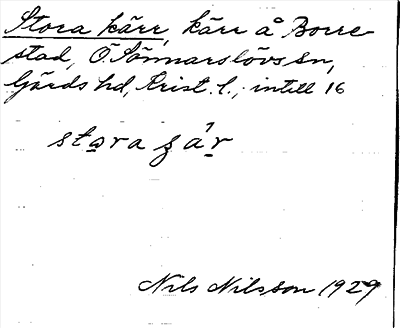 Stora kärr, kärr å Borre-
stad, Ö. Sönnarslövs sn,
Gärds hd, Krist. l., intill 16
stora ʒár
Nils Nilsson 1929